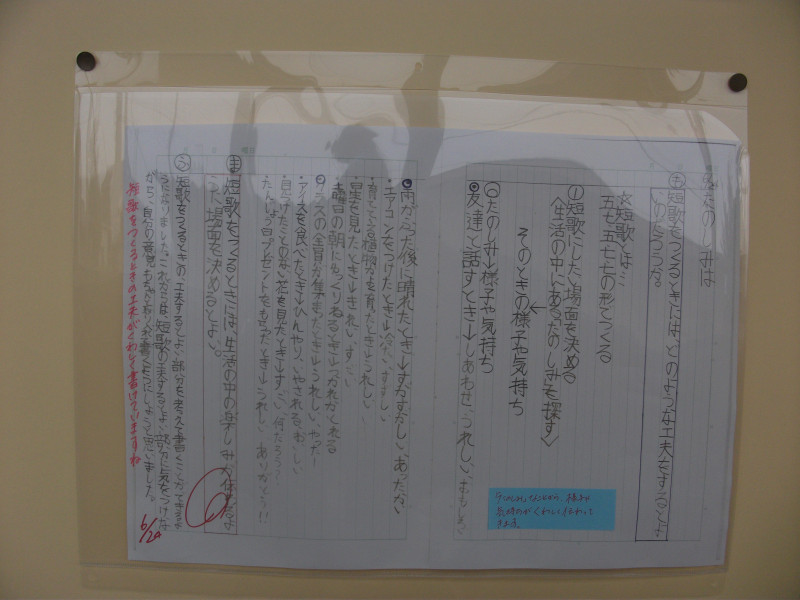 たのしみは
も 短歌をつくるときには、どのような工夫をするとよいのだろうか。
☆短歌とは…
五七五七七の形でつくる
①短歌にしたい場面を決める
〈生活の中にあるたのしみを探す〉
そのときの様子や気持ち
◎たのしみ→様子や気持ち
◎友達と話すとき→しあわせ、うれしい、おもしろい
◎雨がふった後に晴れたとき→すがすがしい、あったかい
・エアコンをつけたとき→冷たい、すずしい
・育てている植物が育ったとき→うれしい
・星を見たとき→きれい、すごい
・曜日の朝にゆっくりねるとき→つかれがとれる
◎クラスの全員が集まったとき→うれしい、やったー!
・アイスを食べたとき→ひんやり、いやされる、おいしい
・見つけたことのない花を見たとき→すごい、何だろう?
・たんじょう日プレゼントをもらったとき→うれしい、ありがとう!!
ま 短歌をつくるときには、生活の中の楽しみが
場面を決めるとよい。
ふ 短歌をつくるときの工夫するとよい部分を考えて書くことができるようになりました。これからは、短歌の工夫するとよい部分に気をつけながら、自分の感覚もちゃんと入れて書くようにしようと思いました。
短歌をつくるときの工夫がくわしく書けていますね
6/24